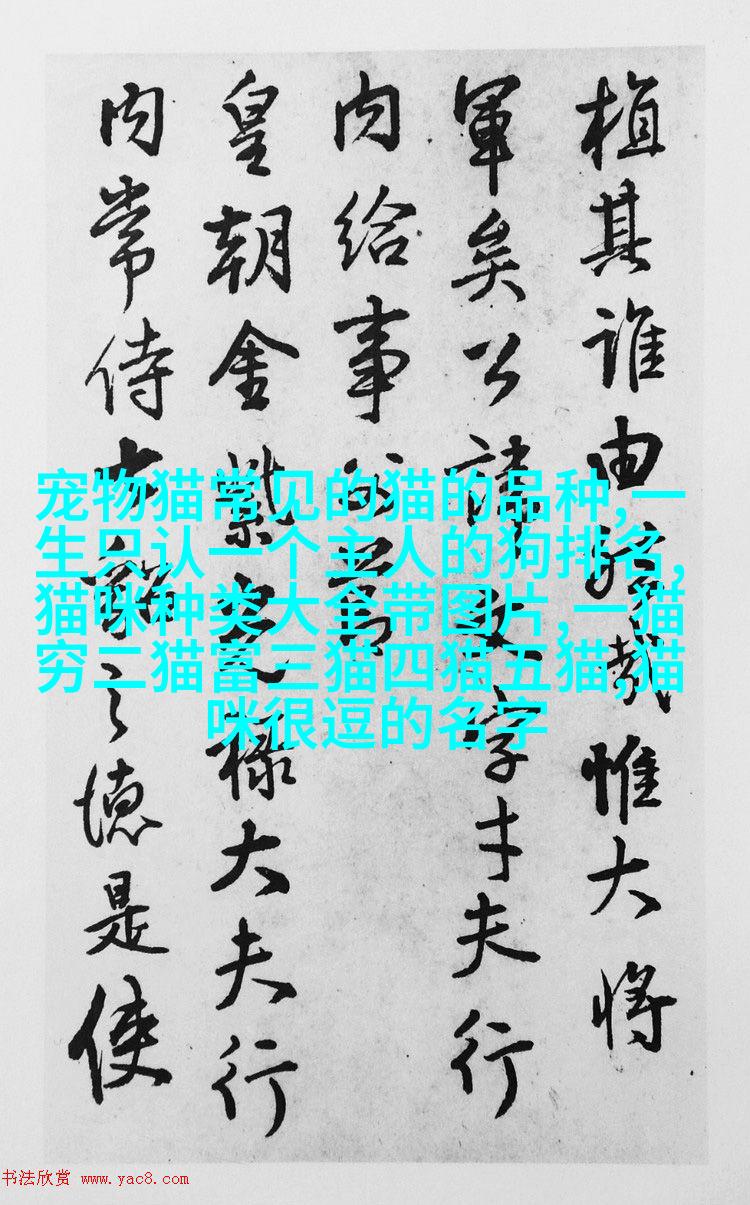 植其誰由哉惟大將
軍矣公諱文字才夫行
内給事
皇朝金紫光祿大夫行
内常侍之德是使
宠物猫常见的猫的品种,一
生只认一个主人的狗排名,
猫咪种类大全带图片,一猫
穷二猫富三猫四猫五猫,猫
咪很逗的名字
书法欣赏 www.yac8.com